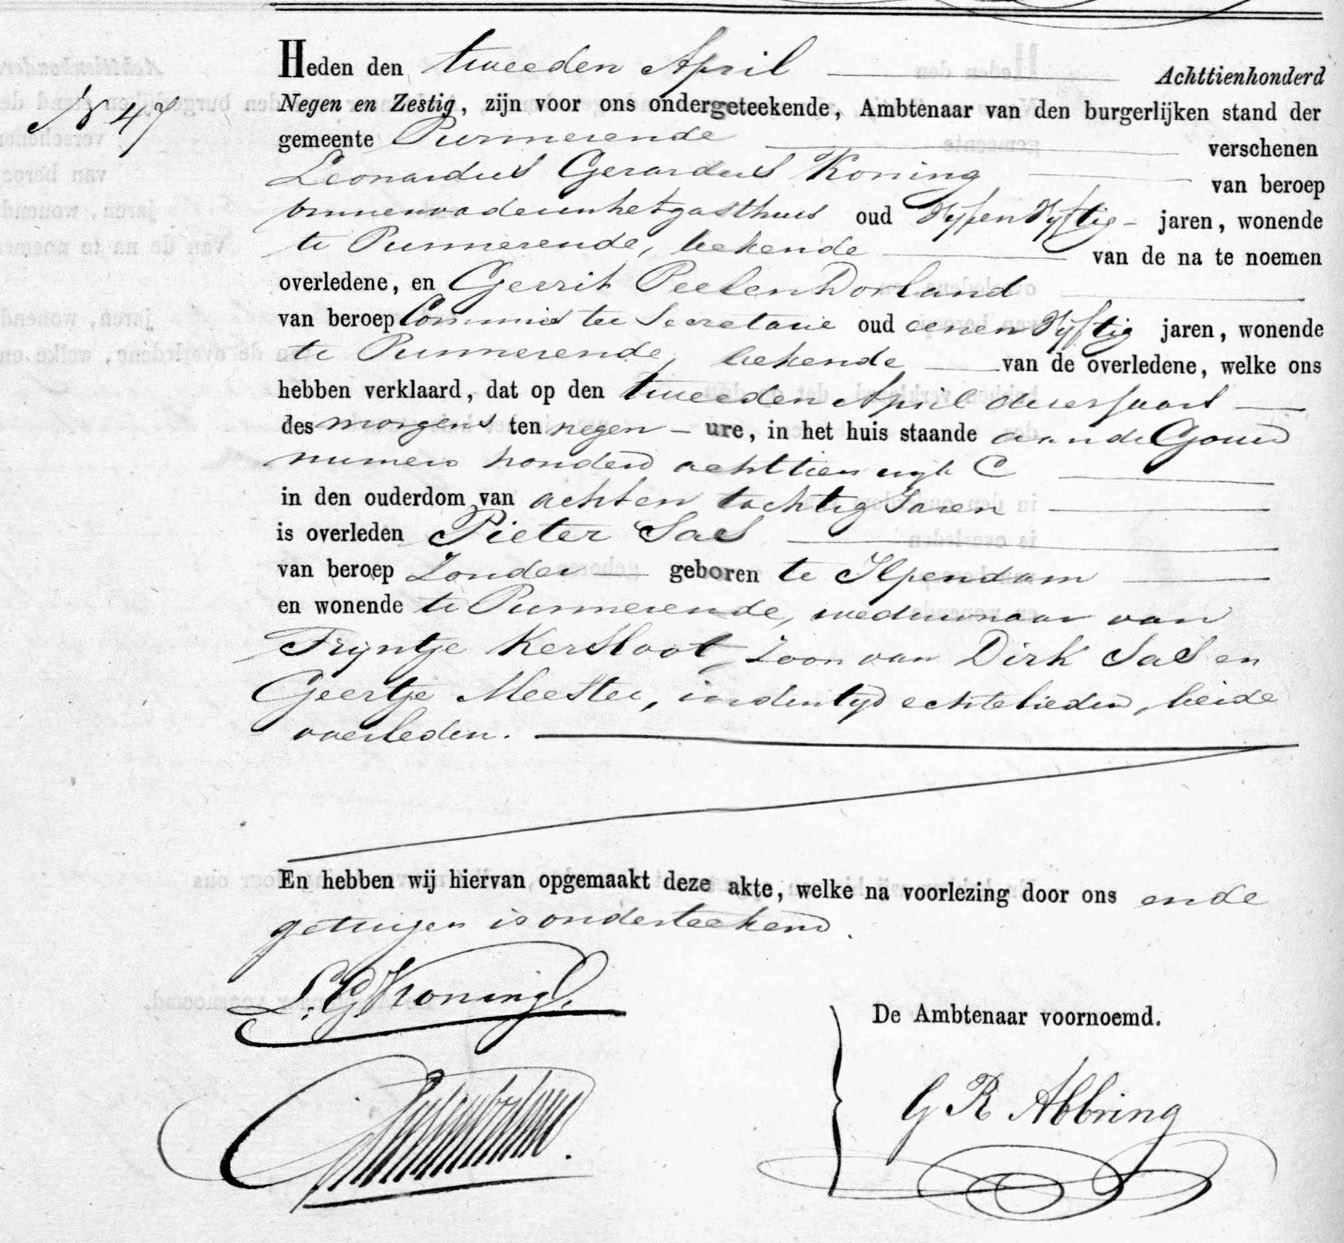 Heden den tweeden April Achttienhonderd
N 47 Negen en Zestig, zijn voor ons ondergeteekende, Ambtenaar van den burgerlijken stand der
gemeente Purmerende verschenen
Leonardus Gerardus Koning van beroep
binnenvader in het gasthuis oud vyf en vyftig jaren, wonende
te Purmerende, bekende van de na te noemen
overledene, en Gerrit Peelen Dorland
van beroep Commies ter Secretarie oud een en vyftig jaren, wonende
te Purmerende, bekende van de overledene, welke ons
hebben verklaard, dat op den tweeden April dezes jaars
des morgens ten negen ure, in het huis staande aan de Gouw
numero honderd achttien wyk C
in den ouderdom van acht en tachtig Jaren
is overleden Pieter Sas
van beroep Zonder geboren te Ilpendam
en wonende te Purmerende, weduwnaar van
Tryntje Kersloot, Zoon van Dirk Sas en
Geertje Meester, in der tyd echtelieden, beide
overleden.
En hebben wij hiervan opgemaakt deze akte, welke na voorlezing door ons en de
getuigen is onderteekend.
L. G. Koning
De Ambtenaar voornoemd.
G R Abbring